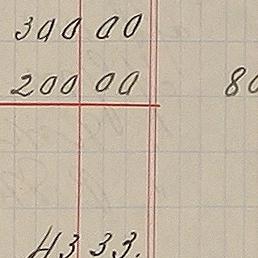 300 00
200 00 80
43 33.